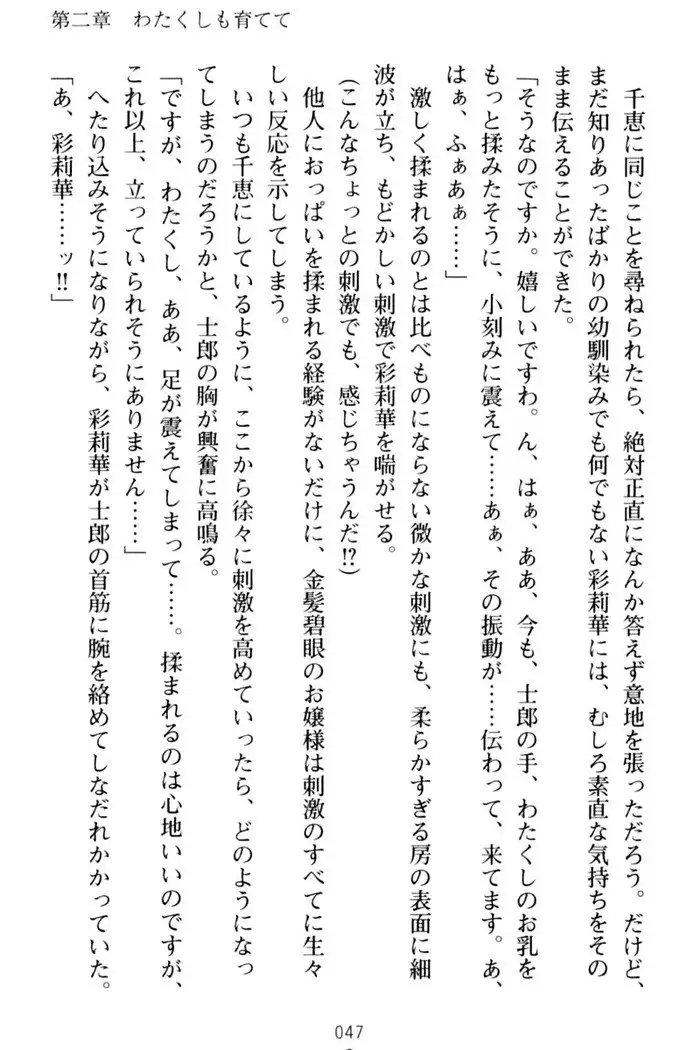 第二章　わたくしも育てて
千恵に同じことを尋ねられたら、絶対正直になんか答えず意地を張っただろう。だけど、
まだ知りあったばかりの幼馴染みでも何でもない彩莉華には、むしろ素直な気持ちをその
まま伝えることができた。
「そうなのですか。嬉しいですわ。ん、はぁ、ああ、今も、士郎の手、わたくしのお乳を
もっと揉みたそうに、小刻みに震えて……あぁ、その振動が……伝わって、来てます。あ、
はぁ、ふぁあぁ……」
激しく揉まれるのとは比べものにならない微かな刺激にも、柔らかすぎる房の表面に細
波が立ち、もどかしい刺激で彩莉華を喘がせる。
(こんなちょっとの刺激でも、感じちゃうんだ!?)
他人におっぱいを揉まれる経験がないだけに、金髪碧眼のお嬢様は刺激のすべてに生々
しい反応を示してしまう。
いつも千恵にしているように、ここから徐々に刺激を高めていったら、どのようになっ
てしまうのだろうかと、士郎の胸が興奮に高鳴る。
「ですが、わたくし、ああ、足が震えてしまって……。揉まれるのは心地いいのですが、
これ以上、立っていられそうにありません……」
へたり込みそうになりながら、彩莉華が士郎の首筋に腕を絡めてしなだれかかっていた。
「あ、彩莉華……ッ!!」
047